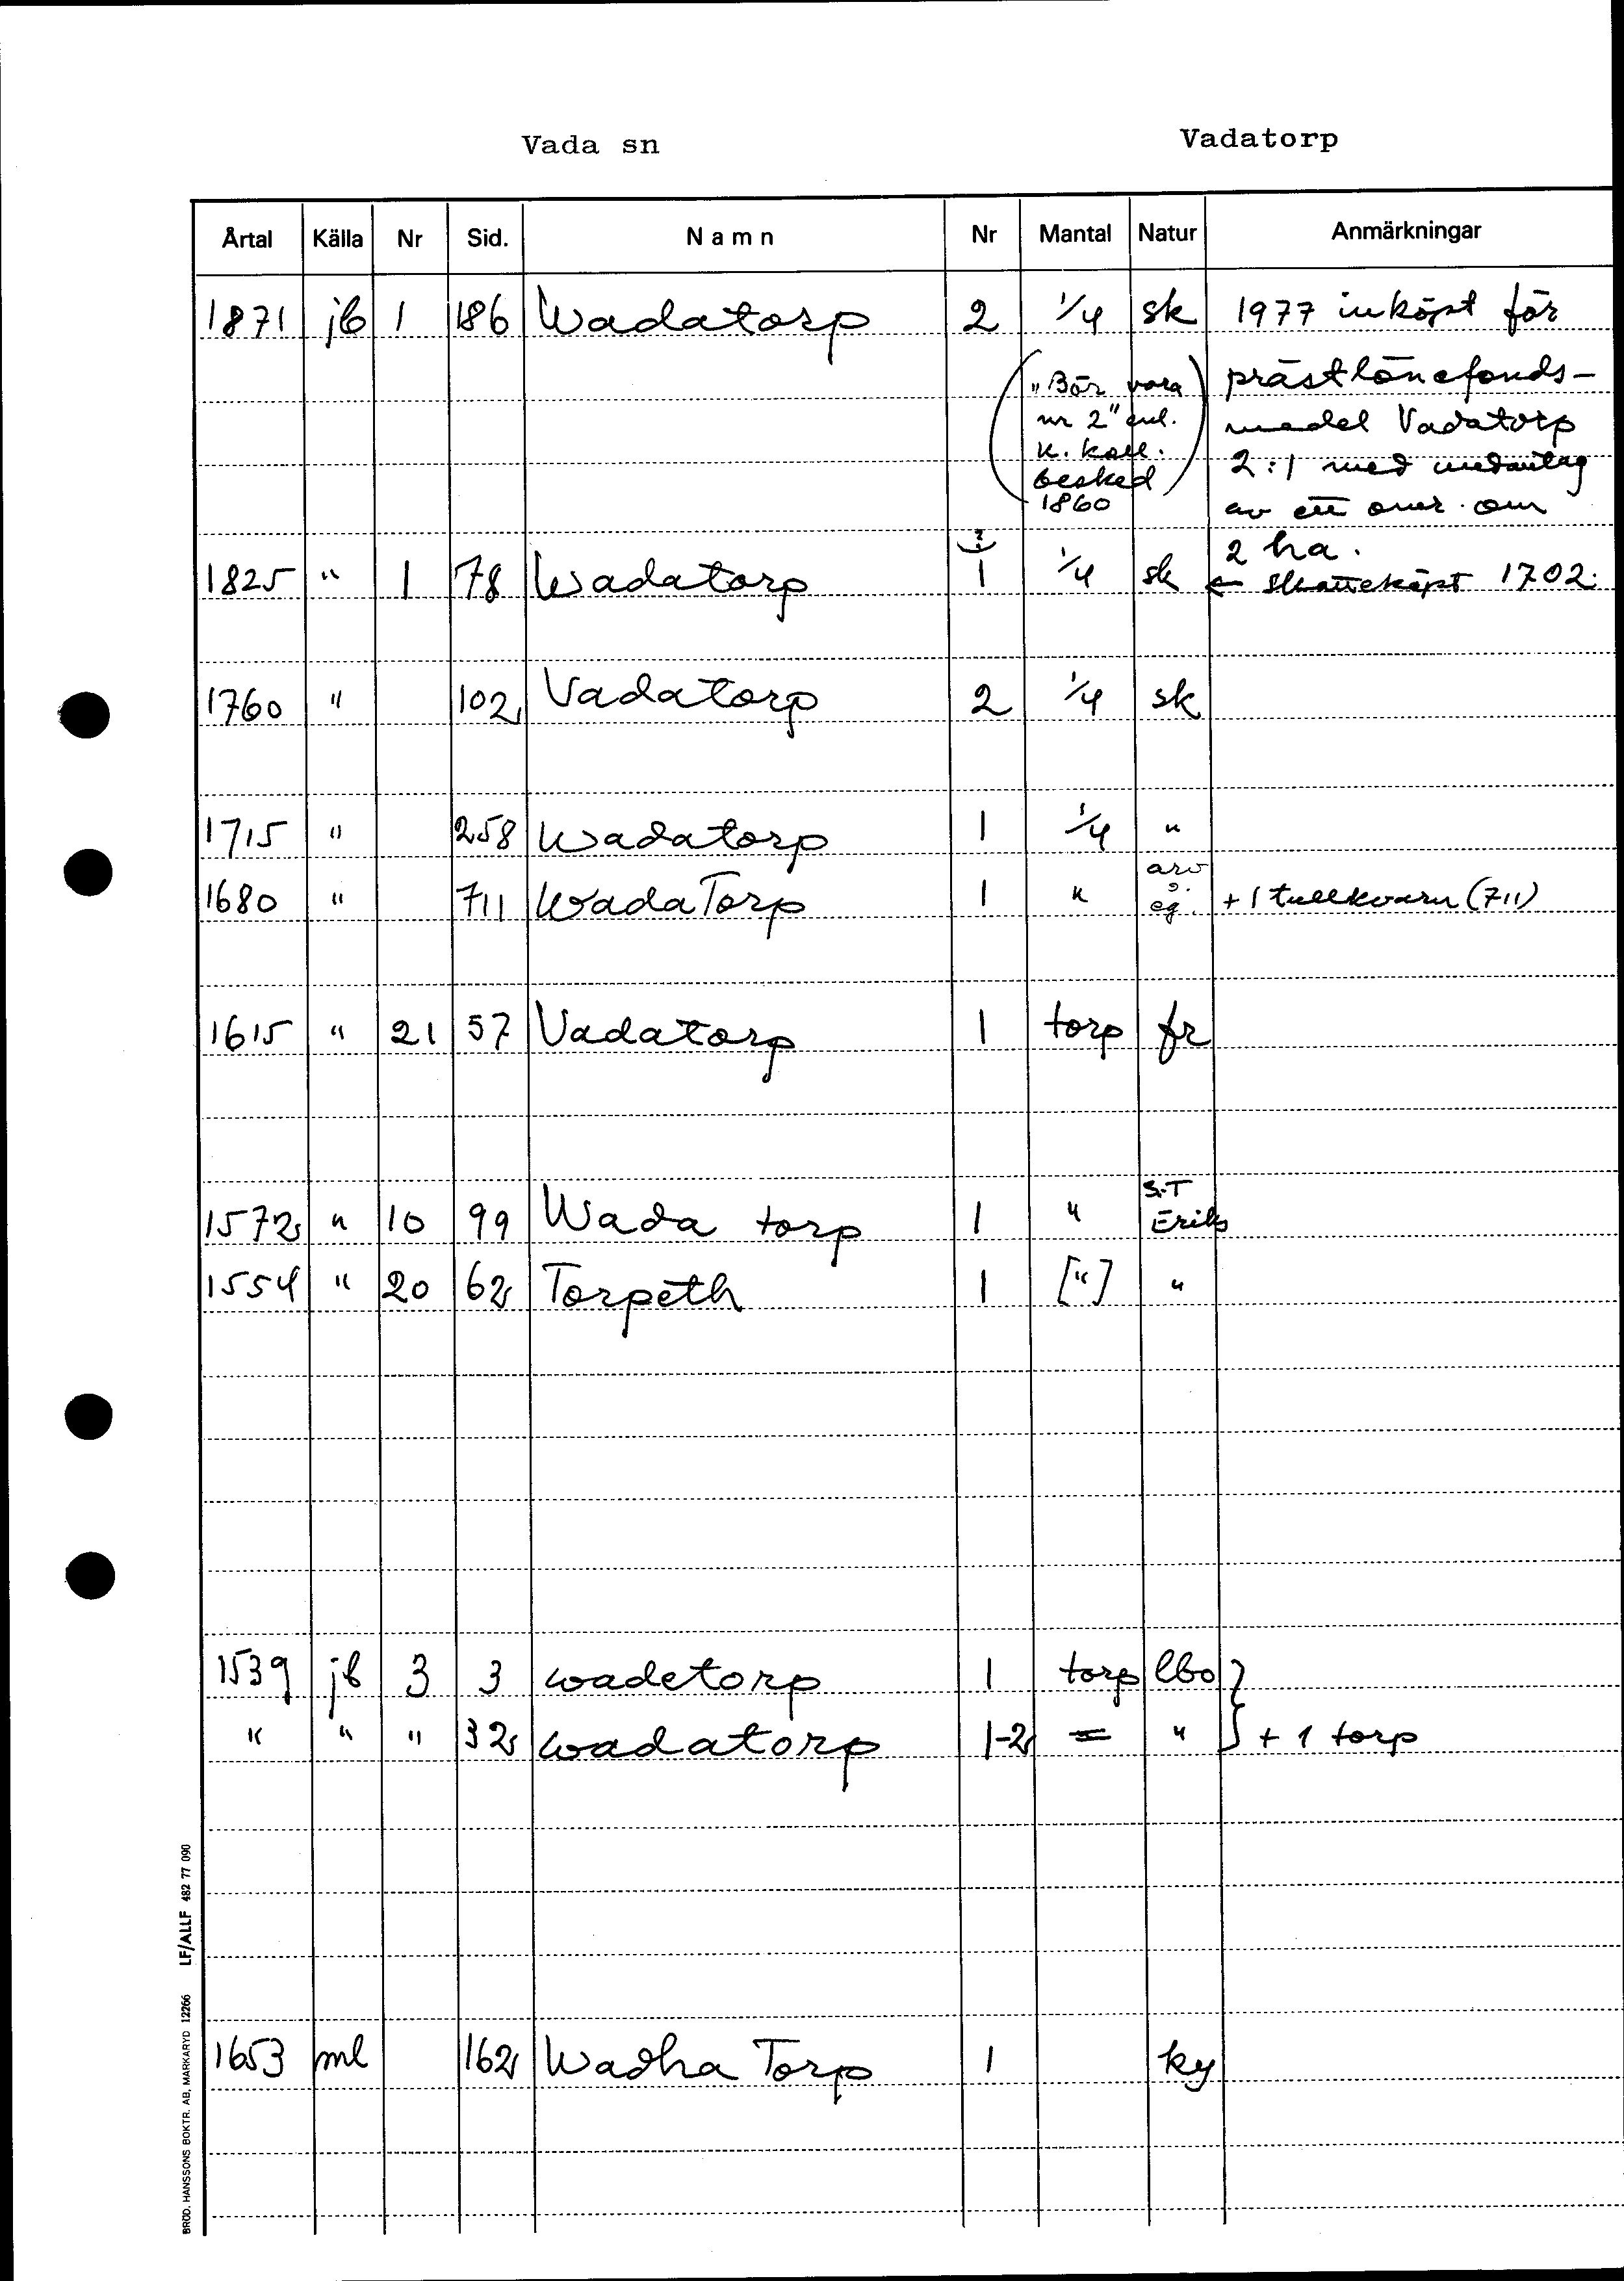 Vada sn Vadatorp
Årtal Källa Nr Sid. Namn Nr Mantal Natur Anmärkningar
1871 jb 1 186 Wadatorp 2 1/4 sk 1977 inköpt för
("Bör vara prästlönefonds-
nr 2" enl. medel Vadatorp
k. koll. 2:1 med undantag
besked av ett områ. om
1860) 2 ha.
?
1825 " 1 78 Wadatorp 1 1/4 sk ← skatteköpt 1702.
1760 " 102 Vadatorp 2 1/4 sk
1715 " 258 Wadatorp 1 1/4 "
1680 " 711 Wada Torp 1 " arv o. eg. + 1 tullkvarn (711)
1615 " 21 57 Vadatorp 1 torp fr
1572 " 10 99 Wada torp 1 " S:T Eriks
1554 " 20 62 Torpeth 1 ["] "
1539 jb 3 3 wadetorp 1 torp lbo }
" " " 32 wadatorp 1-2 = " } + 1 torp
1653 ml 162 Wadha Torp 1 ky
BRÖD. HANSSONS BOKTR. AB, MARKARYD 12266 LF/ALLF 482 77 090